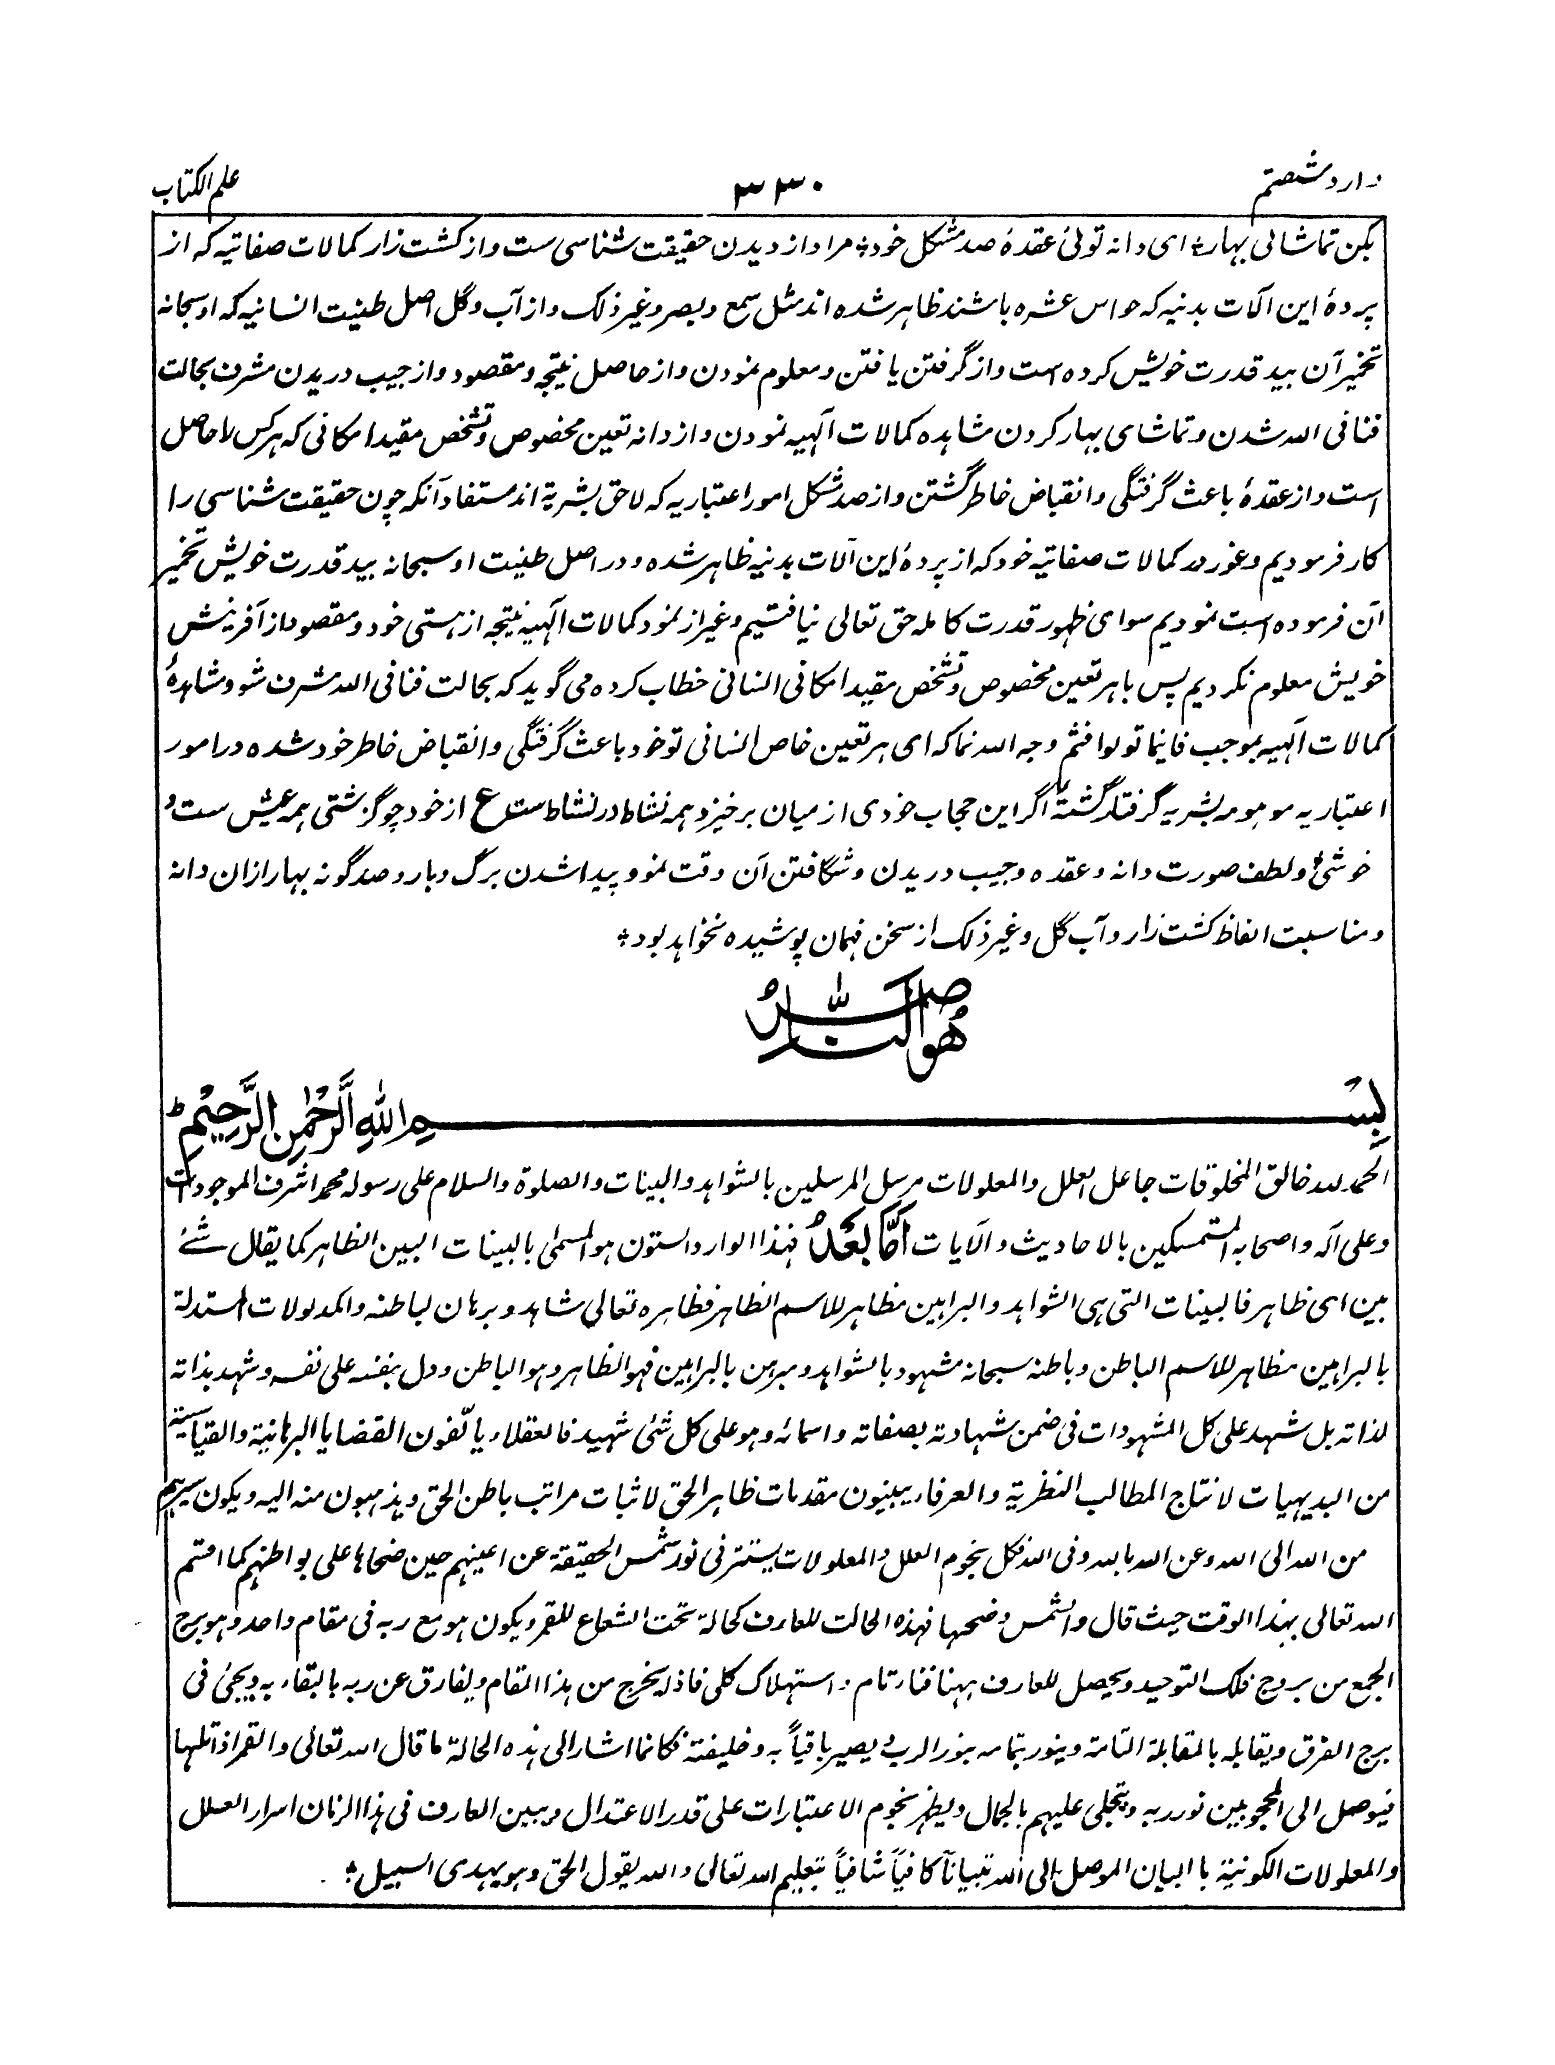 وارد شصتم ۳۳۰ علم الکتاب
بکن تماشائی بہارے ای دانہ توئی عقدۂ صد مشکل خود ٭ مراد از دیدن حقیقت شناسی ست و از کشت زار کمالات صفاتیہ کہ از
پردۂ این آلات بدنیہ کہ حواس عشرہ باشند ظاہر شدہ اند مثل سمع و بصر و غیر ذلک و از آب و گل اصل طینت انسانیہ کہ او سبحانہ
تخمیر آن بید قدرت خویش کردہ است و از گرفتن یافتن و معلوم نمودن و از حاصل نتیجہ و مقصود و از جیب دریدن مشرف بحالت
فنا فی اللہ شدن و تماشای بہار کردن مشاہدہ کمالات آلہیہ نمودن و از دانہ تعین مخصوص و تشخص مقید امکانی کہ ہر کس را حاصل
است و از عقدۂ باعث گرفتگی و انقباض خاطر گشتن و از صد مشکل امور اعتباریہ کہ لاحق بشریۃ اند مستفاد آنکہ چون حقیقت شناسی را
کار فرمودیم و غور در کمالات صفاتیہ خود کہ از پردۂ این آلات بدنیہ ظاہر شدہ و در اصل طینت او سبحانہ بید قدرت خویش تخمیر
آن فرمودہ است نمودیم سوای ظہور قدرت کاملہ حق تعالی نیافتیم و غیر از نمود کمالات آلہیہ نتیجہ از ہستی خود و مقصود از آفرینش
خویش معلوم نکردیم پس با ہر تعین مخصوص و تشخص مقید امکانی انسانی خطاب کردہ می گوید کہ بحالت فنا فی اللہ مشرف شو و مشاہدۂ
کمالات آلہیہ بموجب فاینما تولوا فثم وجہ اللہ نما کہ ای ہر تعین خاص انسانی تو خود باعث گرفتگی و انقباض خاطر خود شدہ در امور
اعتباریہ موہومہ بشریہ گرفتار گشتہ اگر این حجاب خودی از میان برخیزد ہمہ نشاط در نشاط ست ع از خود چو گزشتی ہمہ عیش ست و
خوشی و لطف صورت دانہ و عقدہ و جیب دریدن و شگافتن آن وقت نمو و پیدا شدن برگ و بار و صد گونہ بہار ازان دانہ
و مناسبت الفاظ کشت زار و آب گل و غیر ذلک از سخن فہمان پوشیدہ نخواہد بود ٭
ھو الناصر
بِسْمِ اللهِ الرَّحْمٰنِ الرَّحِيْمِ ط
الحمد للہ خالق المخلوقات جاعل العلل والمعلولات مرسل المرسلین بالشواہد والبینات والصلوۃ والسلام علی رسولہ محمد اشرف الموجودات
وعلی آلہ واصحابہ المستمسکین بالاحادیث والآیات اَمَّا بَعْدُ فہذا الوارد الستون ہو المسمی بالبینات البین الظاہر کما یقال شے
بین ای ظاہر فالبینات التی ہی الشواہد والبراہین مظاہر للاسم الظاہر فظاہرہ تعالی شاہد و برہان لباطنہ والمدلولات المستدلۃ
بالبراہین مظاہر للاسم الباطن وباطنہ سبحانہ مشہود بالشواہد و مبرہن بالبراہین فہو الظاہر وہو الباطن ودل بنفسہ علی نفسہ وشہد بذاتہ
لذاتہ بل شہد علی کل المشہودات فی ضمن شہادتہ بصفاتہ واسمائہ وہو علی کل شئ شہید فالعقلاء یألّفون القضایا البرہانیۃ والقیاسیۃ
من البدیہیات لانتاج المطالب النظریۃ والعرفاء یبنیون مقدمات ظاہر الحق لاثبات مراتب باطن الحق ویذہبون منہ الیہ ویکون سیرہم
من اللہ الی اللہ وعن اللہ باللہ وفی اللہ فکل نجوم العلل والمعلولات یستتر فی نور شمس الحقیقۃ عن اعینہم حین ضحاہا علی بواطنہم کما اقسم
اللہ تعالی بہذا الوقت حیث قال والشمس وضحہا فہذہ الحالت للعارف کحالۃ تحت الشعاع للقمر ویکون ہو مع ربہ فی مقام واحد وہو برج
الجمع من بروج فلک التوحید ویحصل للعارف ہہنا فناء تام و استہلاک کلی فاذا یخرج من ہذا المقام ویفارق عن ربہ بالبقاء بہ ویجئ فی
برج الفرق ویقابلہ بالمقابلۃ التامۃ وینور بتمامہ بنور الرب یصیر باقیاً بہ وخلیفتہ فکانما اشار الی ہذہ الحالۃ ما قال اللہ تعالی والقمر اذا تلہا
فیوصل الی المحجوبین نور ربہ ویتجلی علیہم بالجمال ویظہر نجوم الاعتبارات علی قدر الاعتدال ویبین العارف فی ہذا الزمان اسرار العلل
والمعلولات الکونیۃ بالبیان الموصل الی اللہ تبیاناً کافیاً شافیاً بتعلیم اللہ تعالی واللہ یقول الحق وہو یہدی السبیل ٭